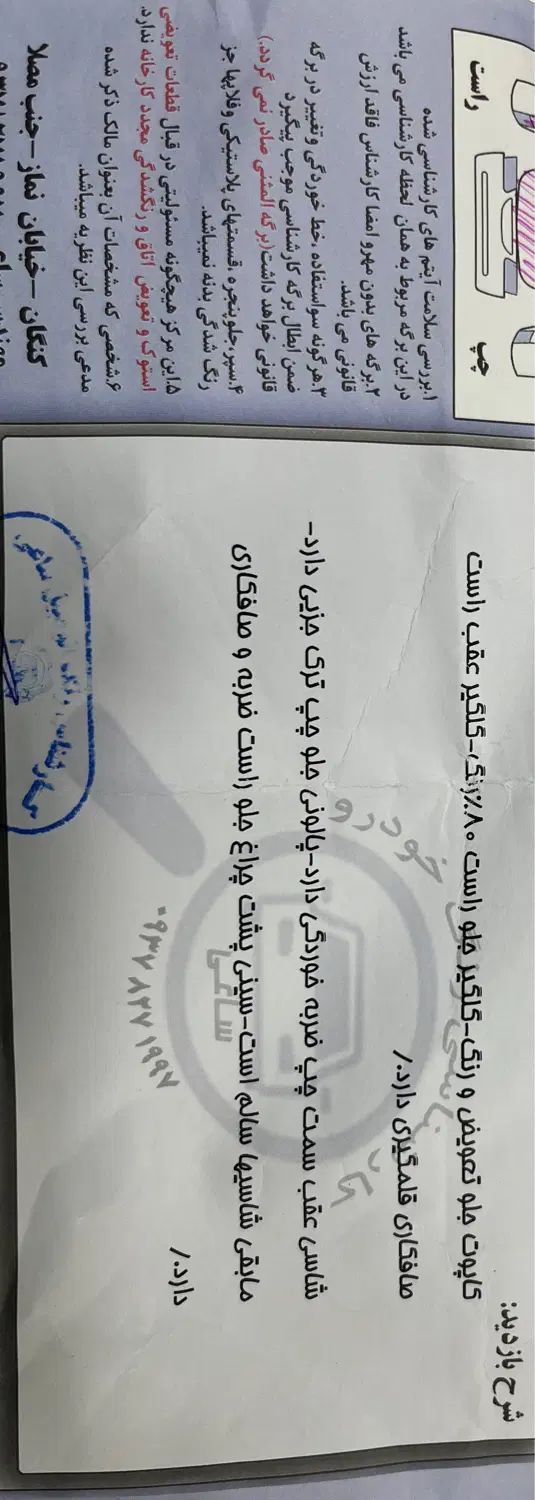 شرح بازدید:
کاپوت جلو تعویض و رنگ-گلگیر جلو راست ۸۰٪رنگ-گلگیر عقب راست
صافکاری قلمگیری دارد./
شاسی عقب سمت چپ ضربه خوردگی دارد-پالونی جلو چپ ترک جزیی دارد-
مابقی شاسیها سالم است-سینی پشت چراغ جلو راست ضربه و صافکاری
دارد./
خودرو
ساعی
۰۹۳۷۸۲۷۱۹۹۷
راست
چپ
۱.بررسی سلامت آیتم های کارشناسی شده
در این برگه مربوط به همان لحظه کارشناسی می باشد
۲.برگه های بدون مهر و امضا کارشناس فاقد ارزش
قانونی می باشد.
۳.هر گونه سواستفاده ،خط خوردگی و تغییر در برگه
ضمن ابطال برگه کارشناسی موجب پیگیرد
قانونی خواهد داشت(برگه المثنی صادر نمی گردد.)
۴.سپر،جلوپنجره ،قسمتهای پلاستیکی وفلاپها جز
رنگ شدگی بدنه نمیباشد.
۵.این مرکز هیچگونه مسئولیتی در قبال قطعات تعویضی
استوک و تعویض اتاق و رنگشدگی مجدد کارخانه ندارد.
۶.شخصی که مشخصات آن بعنوان مالک ذکر شده
مدعی بررسی این نظریه میباشد.
کنگان -خیابان نماز -جنب مصلا